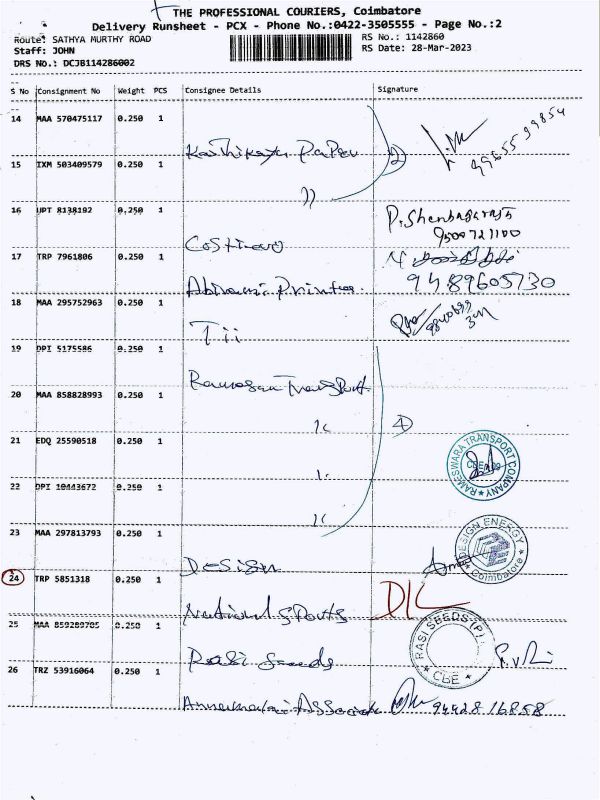 THE PROFESSIONAL COURIERS, Coimbatore
Delivery Runsheet - PCX - Phone No.:0422-3505555 - Page No.:2
Route: SATHYA MURTHY ROAD
Staff: JOHN
DRS No.: DCJB114286002
RS No.: 1142860
RS Date: 28-Mar-2023
S No Consignment No Weight PCS Consignee Details Signature
14 MAA 570475117 0.250 1
99655 99854
15 IXM 503409579 0.250 1
16 UPT 8138192 0.250 1 P. Shenbagaraja
9500721100
Costimavo
17 TRP 7961806 0.250 1
9489605730
Abirami Printer
18 MAA 295752963 0.250 1
Tii
19 DPI 5175586 0.250 1
Transport
20 MAA 858828993 0.250 1
4
21 EDQ 25590518 0.250 1
RAMESWARA TRANSPORT COMPANY
22 DPI 10443672 0.250 1
23 MAA 297813793 0.250 1
Design
DESIGN ENERGY
Coimbatore
24 TRP 5851318 0.250 1 D/L
National Sports
25 MAA 859289785 0.250 1
Rasi Seeds
RASI SEEDS (P)
CBE
26 TRZ 53916064 0.250 1
Annamalai Associate 94428 16858